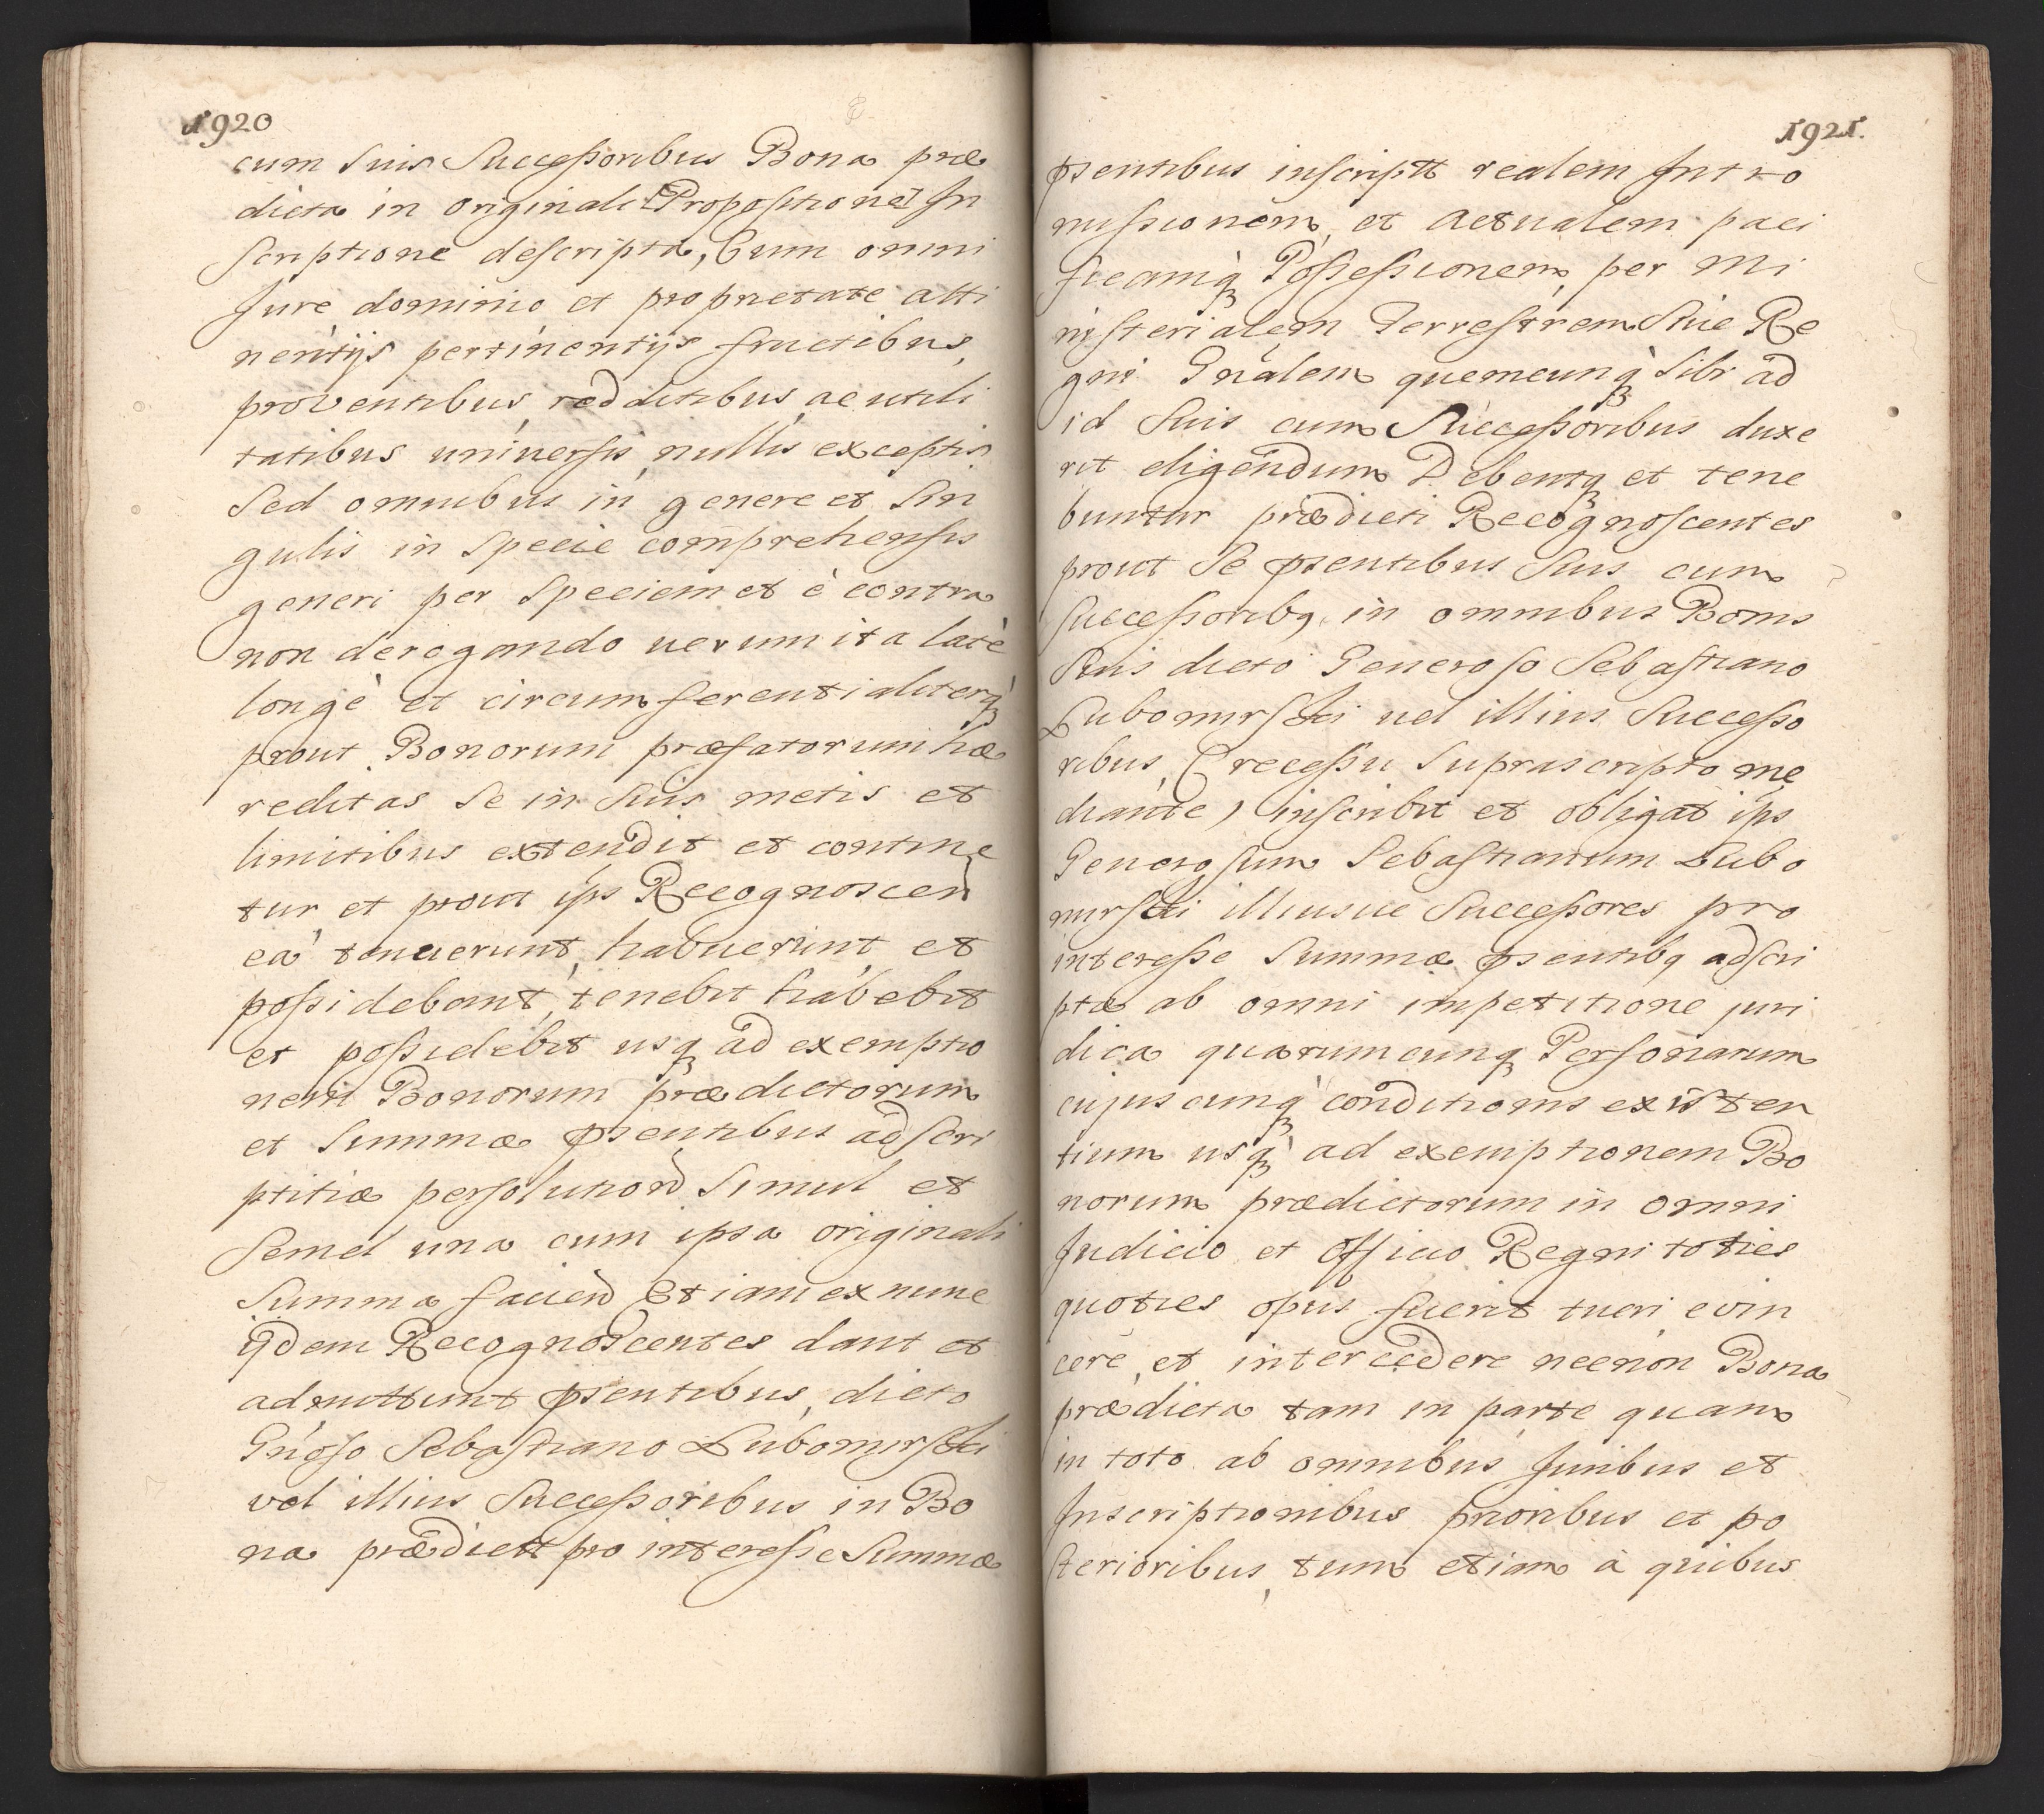 1920
cum suis Successoribus Bona præ
dicta in originali [Propositione] In
scriptione descripta, Cum omni
Jure dominio et proprietate atti
nentijs pertinentijs fructibus,
proventibus, redditibus, ac utili
tatibus universis, nullis exceptis
Sed omnibus in genere et Sin
gulis in Specie comprehensis
generi per Speciem et è contra
non derogando verum ita latè
longè et circumferentialiterq̀
prout Bonorum præfatorum hæ
reditas Se in Suis metis et
limitibus extendit et contine
tur et prout ips Recognoscen
ea tenuerunt, habuerunt, et
possidebant, tenebit habebit
et possidebit usq ad exemptio
nem Bonorum prædictorum
et Summæ pñsentibus adscri
ptitiæ persolutiond Simul et
Semel una cum ipsa originali
Summa faciend Etiam ex nunc
ijdem Recognoscentes dant et
admittunt pñsentibus, dicto
Gnoso Sebastiano Lubomirski
vel illius Successoribus in Bo
na prædictt pro interesse Summæ
1921.
pñsentibus inscriptt realem Intro
missionem, et actualem paci
ficamq̀ Possessionem, per Mi
nisterialem Terrestrem Sive Re
gni Gnalem quemcunq̀ Sibi ad
id Suis cum Successoribus duxe
rit eligendum Debentq et tene
buntur prædicti Recognoscentes
prout Se pñsentibus Suis cum
successoribq in omnibus Bonis
Suis dicto Generoso Sebastiano
Lubomirski vel illius Successo
ribus, (recessu Suprascripto me
diante) inscribit et obligat ips
Generosum Sebastianum Lubo
mirski illiusve Successores pro
interesse Summæ pñsentibq adscri
ptæ ab omni impetitione juri
dica quarumcunq Personarum
cujuscunq̀ conditionis existen
tium usq̀ ad exemptionem Bo
norum prædictorum in omni
Judicio et officio Regni toties
quoties opus fuerit tueri, evin
cere, et intercedere necnon Bona
prædicta tam in parte quam
in toto ab omnibus Juribus et
Inscriptionibus prioribus et po
sterioribus, tum etiam à quibus